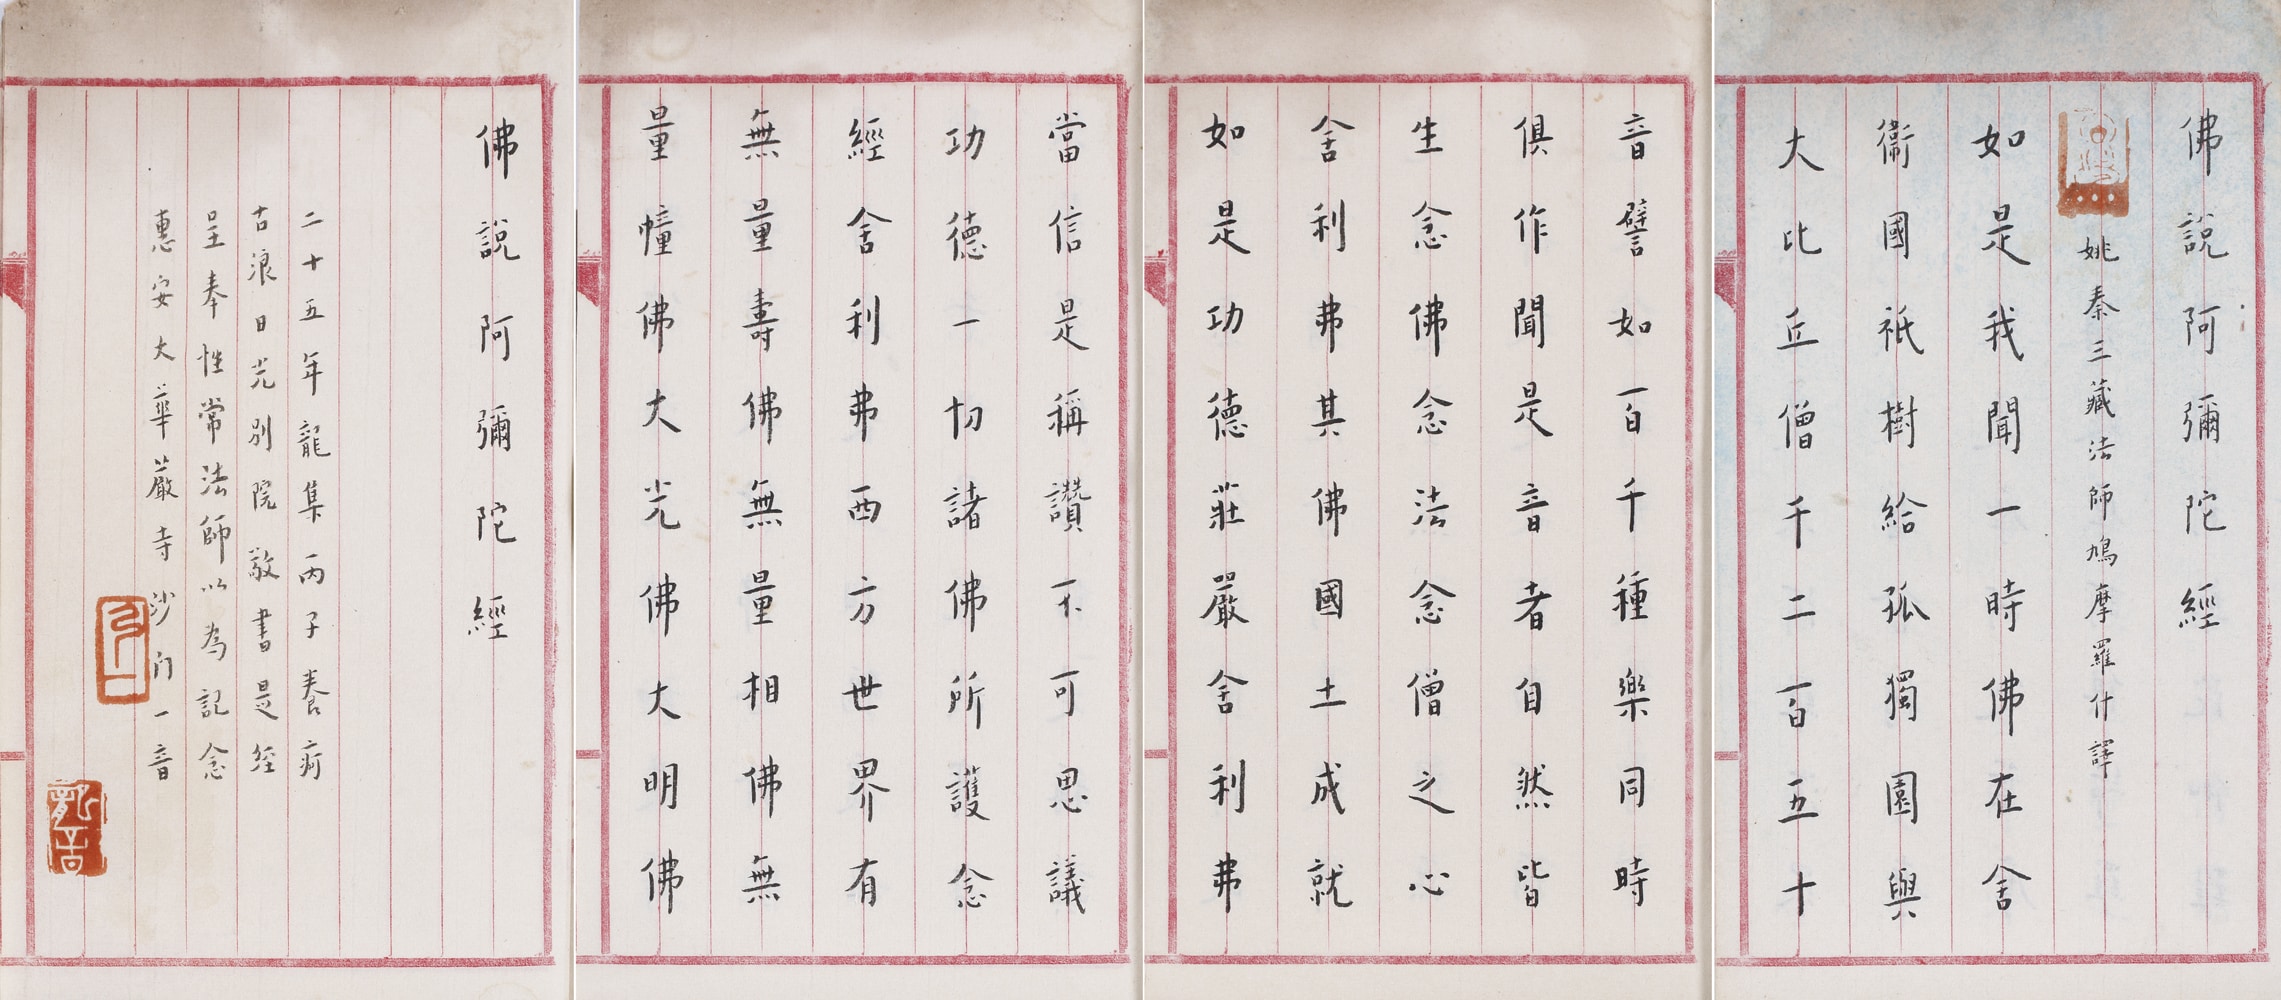 佛說阿彌陀經
姚秦三藏法師鳩摩羅什譯
如是我聞一時佛在舍
衛國祇樹給孤獨園與
大比丘僧千二百五十
音譬如百千種樂同時
俱作聞是音者自然皆
生念佛念法念僧之心
舍利弗其佛國土成就
如是功德莊嚴舍利弗
當信是稱讚不可思議
功德一切諸佛所護念
經舍利弗西方世界有
無量壽佛無量相佛無
量幢佛大光佛大明佛
佛說阿彌陀經
二十五年龍集丙子養痾
古浪日光別院敬書是經
呈奉性常法師以為記念
惠安大華嚴寺沙门一音